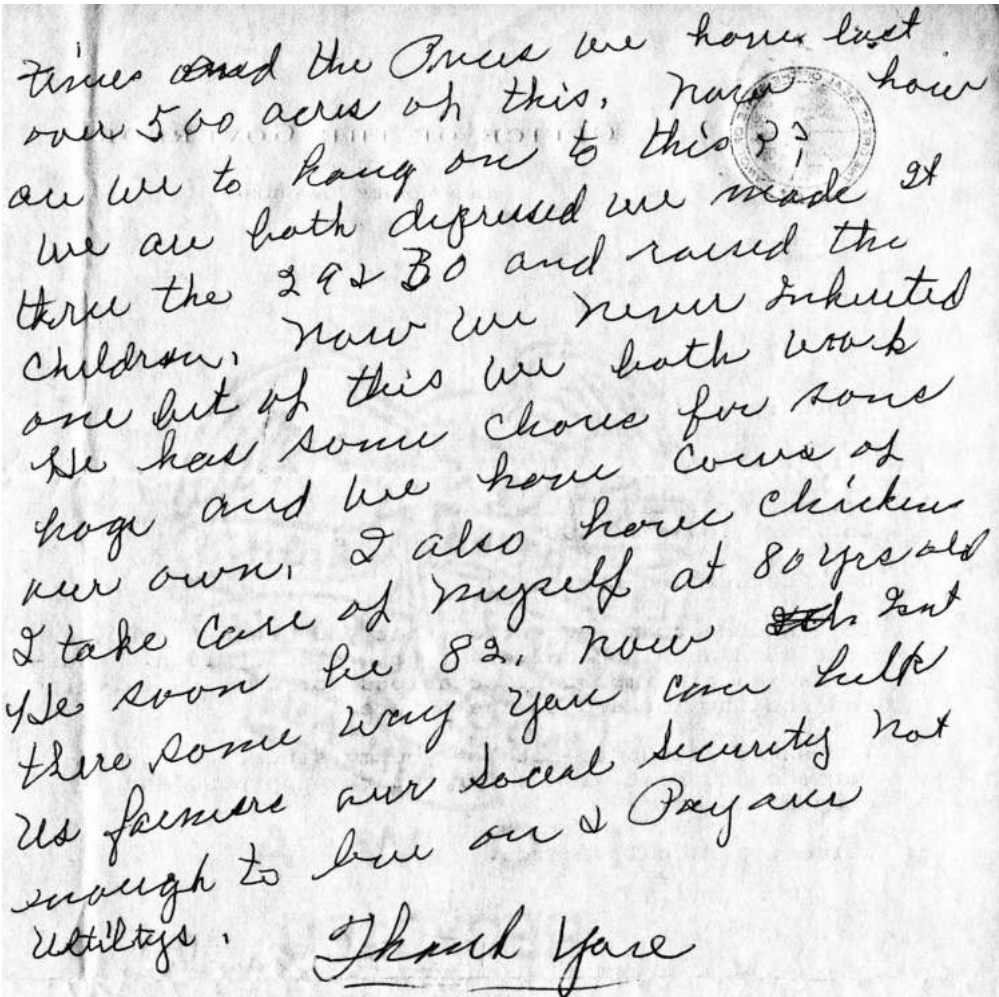 times and the Prices we have lost
over 500 acres of this. Now how
are we to hang on to this ??
We are both depressed we made It
thru the 29 & 30 and raised the
Children. Now we never Inherited
one bit of this we both work
He has some chores for sons
hogs and we have cows of
our own. I also have Chickens
I take care of Myself at 80 yrs old
He soon be 82. Now Isnt
there some way you can help
us farmers our Social Security Not
enough to live on & Pay our
utiltys.
Thank You